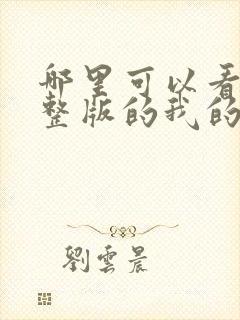 哪里可以看
整版的我的
劉雲晨